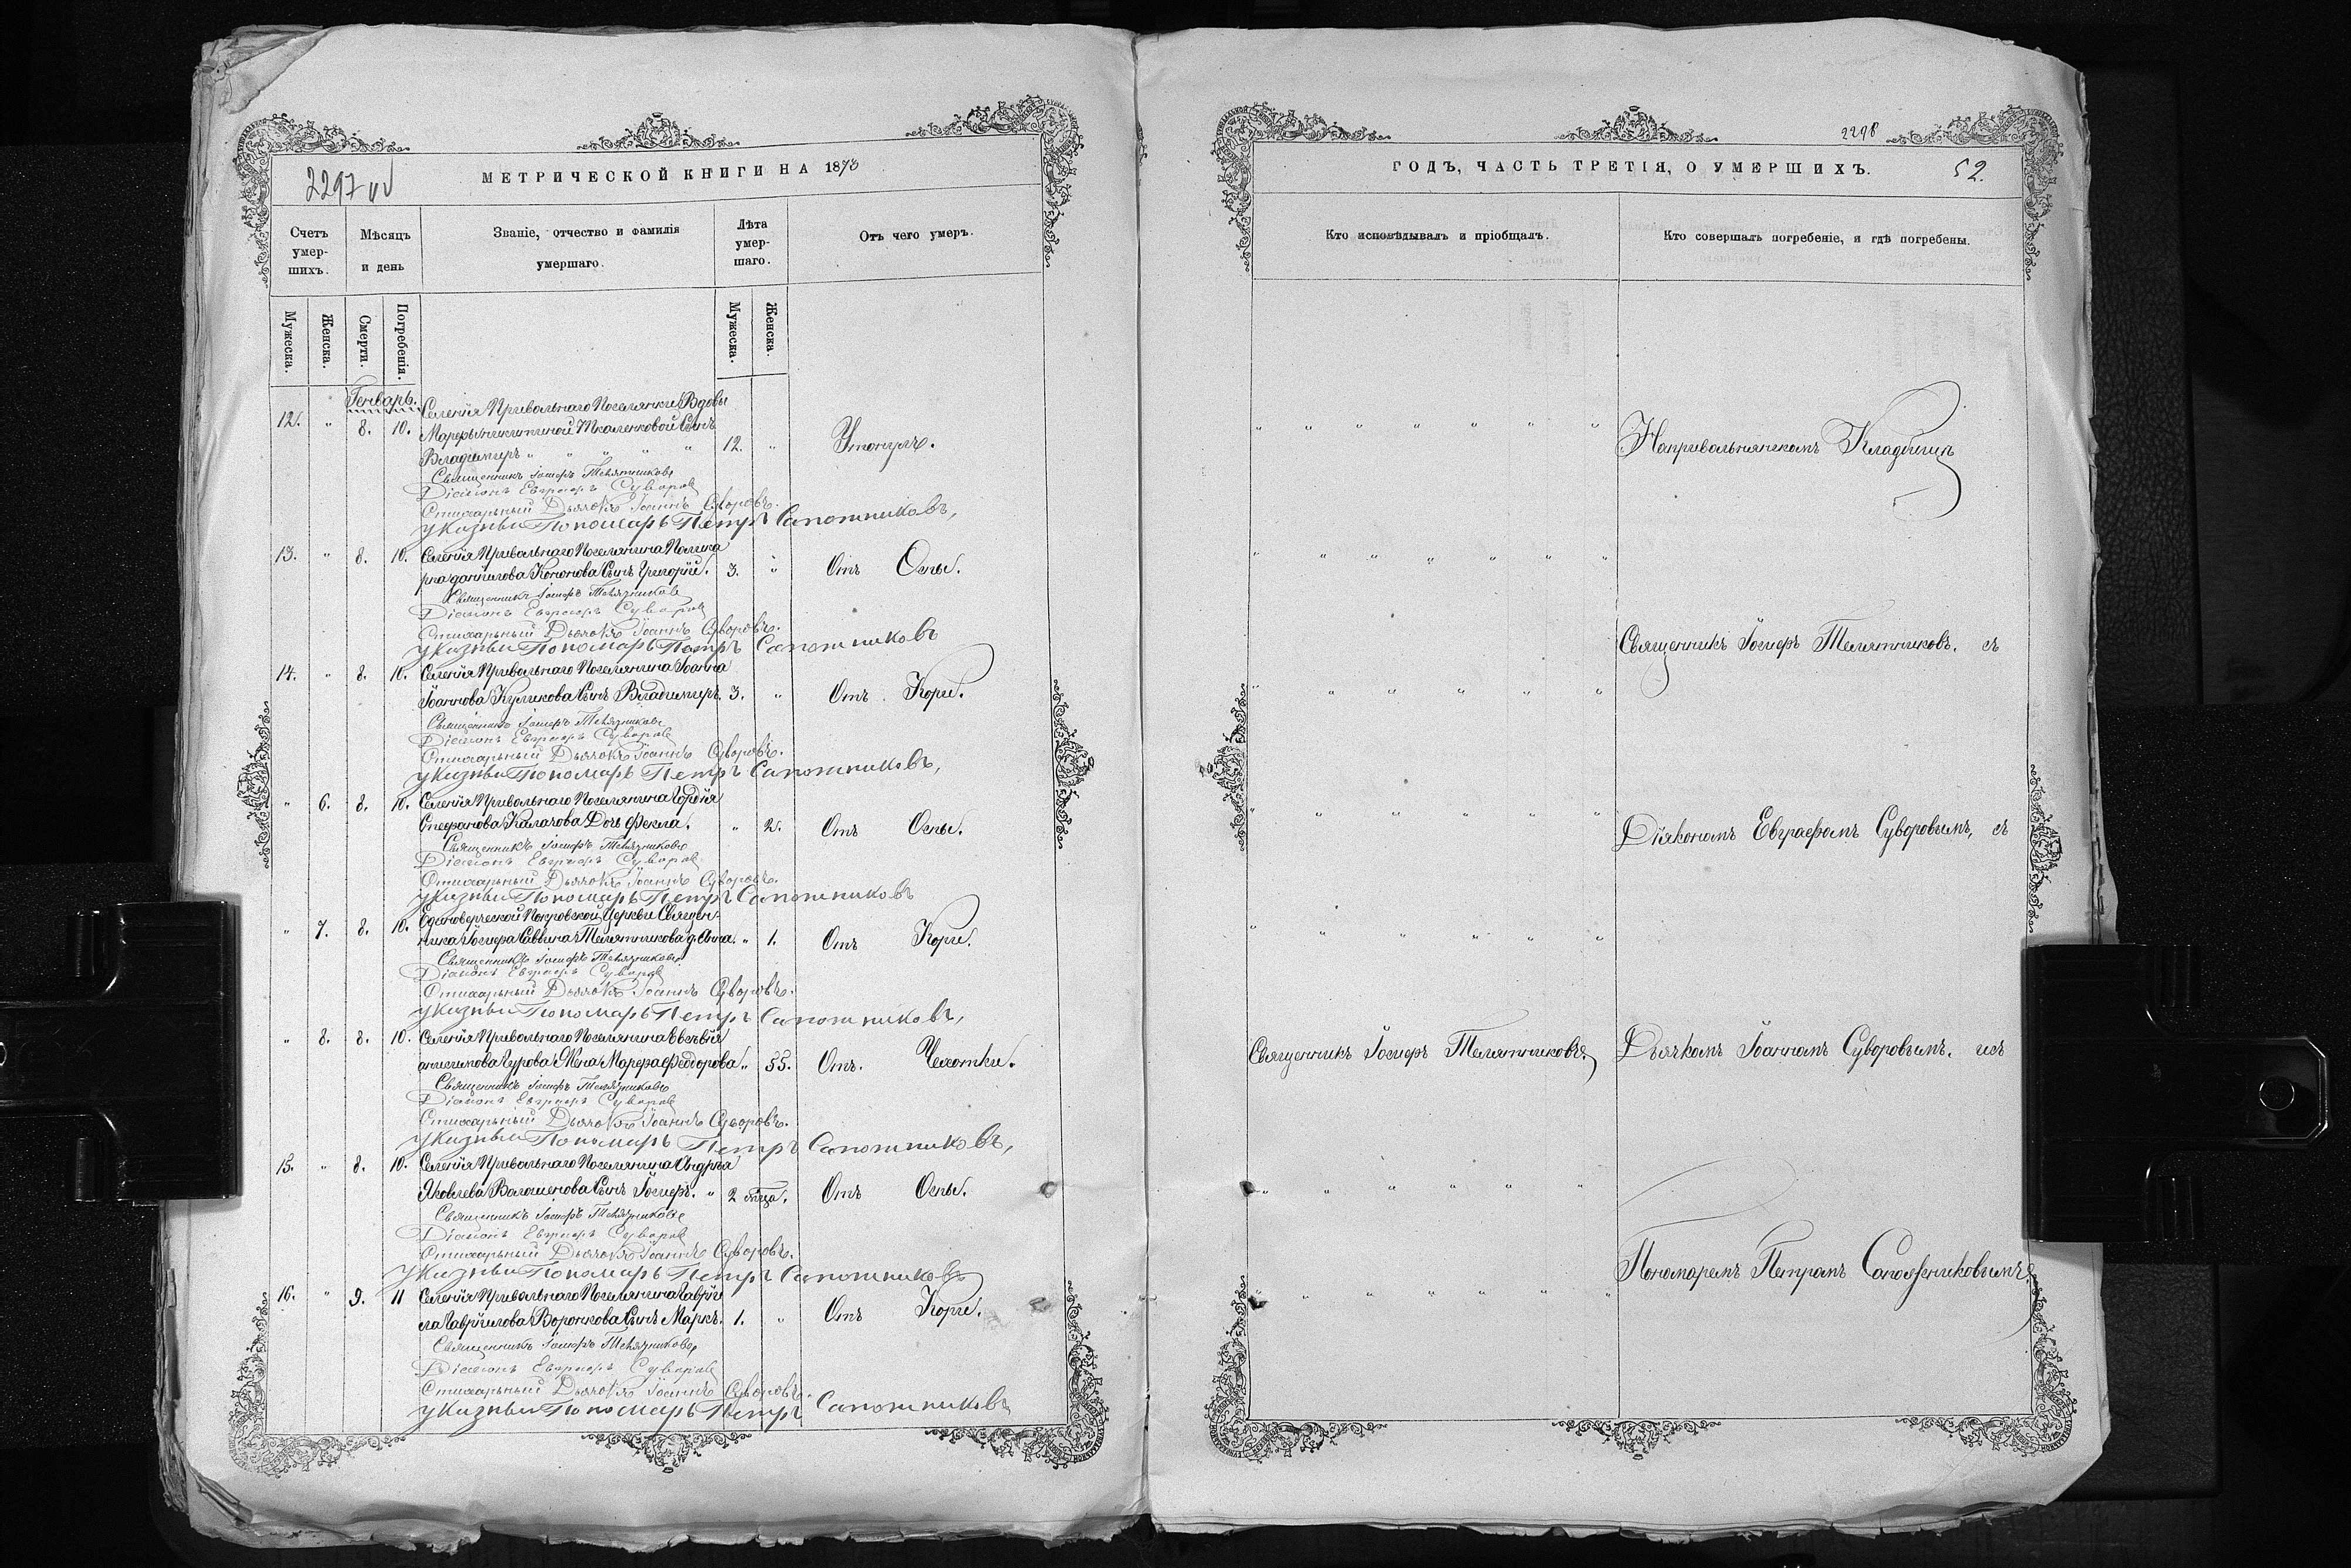 2297 об
МЕТРИЧЕСКОЙ КНИГИ НА 1873
Счетъ умер-шихъ.
Мѣсяцъ и день
Званіе, отчество и фамилія умершаго.
Лѣта умер-шаго.
Отъ чего умеръ.
Мужеска.
Женска.
Смерти.
Погребенія.
Мужеска.
Женска.
Генварь.
Селенія Привольнаго Поселянки Вдовы
12. " 8. 10. Марѳы Никитиной Ткаленковой Сынъ
Владимиръ " " " " " 12. " Утонулъ.
Священникъ Іосифъ Телятниковъ
Діаконъ Евграфъ Суворов
Стихарный Дьячокъ Іоаннъ Суворовъ.
Указный Пономарь Петръ Сапожниковъ,
13. " 8. 10. Селенія Привольнаго Поселянина Полика
рпа Данилова Кононова Сынъ Григорій. 3. " Отъ Оспы.
Священникъ Іосифъ Телятниковъ
Діаконъ Евграфъ Суворов
Стихарный Дьячокъ Іоаннъ Суворовъ.
Указный Пономарь Петръ Сапожниковъ
14. " 8. 10. Селенія Привольнаго Поселянина Іоанна
Іоаннова Куликова Сынъ Владимиръ. 3. " Отъ Кори.
Священникъ Іосифъ Телятниковъ
Діаконъ Евграфъ Суворов
Стихарный Дьячокъ Іоаннъ Суворовъ.
Указный Пономарь Петръ Сапожниковъ,
" 6. 8. 10. Селенія Привольнаго Поселянина Гордія
Стефанова Калачова Дочь Фекла. " 2. Отъ Оспы.
Священникъ Іосифъ Телятниковъ
Діаконъ Евграфъ Суворов
Стихарный Дьячокъ Іоаннъ Суворовъ.
Указный Пономарь Петръ Сапожниковъ
" 7. 8. 10. Единоверческой Покровской Церкви Священ-
ника Іосифа Саввина Телятникова д. Анна. " 1. Отъ Кори.
Священникъ Іосифъ Телятниковъ
Діаконъ Евграфъ Суворов
Стихарный Дьячокъ Іоаннъ Суворовъ.
Указный Пономарь Петръ Сапожниковъ,
" 8. 8. 10. Селенія Привольнаго Поселянина Евсевія
Гурова Жена Марфа Федорова. " 55. Отъ. Чахотки.
Священникъ Іосифъ Телятниковъ
Діаконъ Евграфъ Суворов
Стихарный Дьячокъ Іоаннъ Суворовъ.
Указный Пономарь Петръ Сапожниковъ,
15. " 8. 10. Селенія Привольнаго Поселянина Андрѣя
Яковлева Волошенова Сынъ Іосифъ. " 2 мѣсца. Отъ Оспы.
Священникъ Іосифъ Телятниковъ
Діаконъ Евграфъ Суворов
Стихарный Дьячокъ Іоаннъ Суворовъ.
Указный Пономарь Петръ Сапожниковъ
16. " 9. 11 Селенія Привольнаго Поселянина Гаврі
ла Гаврилова Воронкова Сынъ Маркъ. 1. " Отъ Кори.
Священникъ Іосифъ Телятниковъ
Діаконъ Евграфъ Суворов
Стихарный Дьячокъ Іоаннъ Суворовъ.
Указный Пономарь Петръ Сапожниковъ
2298
ГОДЪ, ЧАСТЬ ТРЕТІЯ, О УМЕРШИХЪ. 52.
Кто исповѣдывалъ и пріобщалъ.
Кто совершалъ погребеніе, и гдѣ погребены.
" " " " " " "
На привольнянскомъ Кладбищѣ
" " " " " " "
Священникъ Іосифъ Телятниковъ. съ
" " " " " "
" " " " " "
Діякономъ Евграфомъ Суворовымъ, съ
" " " " " "
Священникъ Іосифъ Телятниковъ. Дьячкомъ Іоанномъ Суворовымъ. исъ
" " " " " "
Пономаремъ Петромъ Сапожниковымъ
" " " " " " "